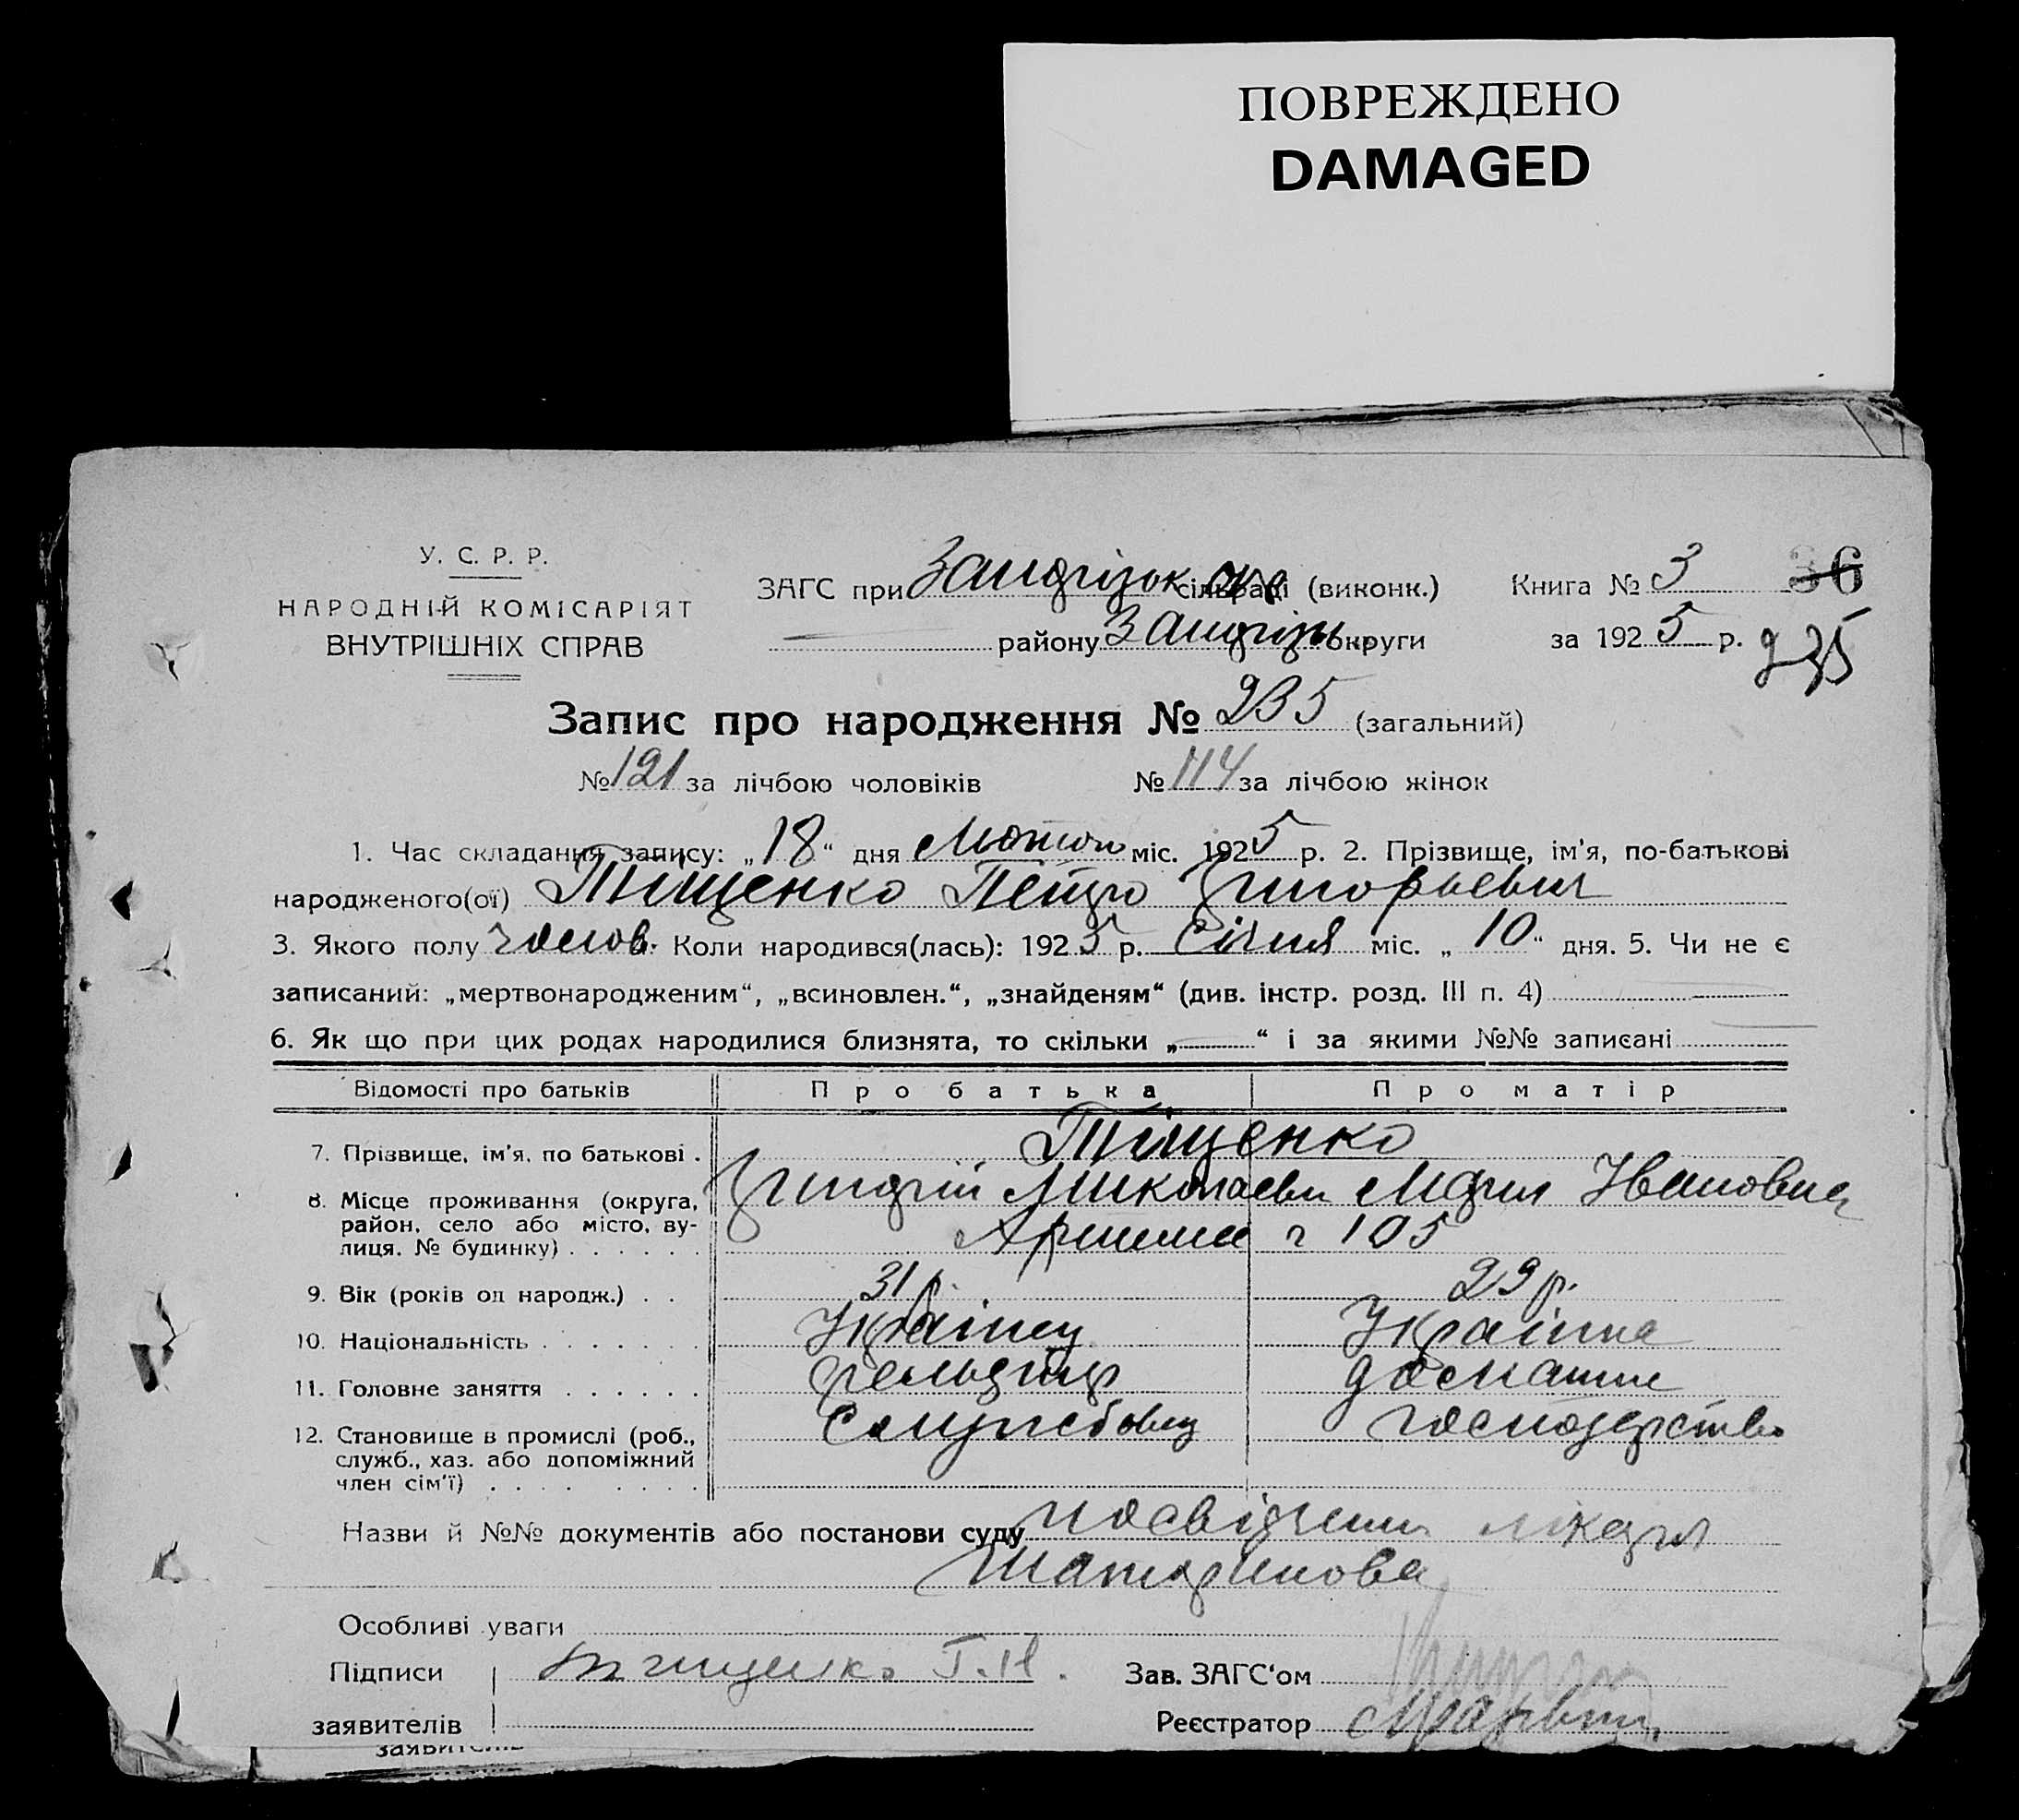 ПОВРЕЖДЕНО
DAMAGED
У. С. Р. Р.
НАРОДНІЙ КОМІСАРІЯТ
ВНУТРІШНІХ СПРАВ
ЗАГС при сільраді (виконк.)
району округи
Книга № 3
36
за 1925 р.
235
Запис про народження № 235 (загальний)
№ 121 за лічбою чоловіків № 114 за лічбою жінок
1. Час складання запису: „18“ дня Лютого міс. 1925 р. 2. Прізвище, ім'я, по-батькові
народженого(ої) Тіщенко Петро Григорьевич
3. Якого полу чолов. Коли народився(лась): 1925 р. Січня міс. „10“ дня. 5. Чи не є
записаний: „мертвонародженим“, „всиновлен.“, „знайденям“ (див. інстр. розд. III п. 4)
6. Як що при цих родах народилися близнята, то скільки „—“ і за якими №№ записані
Відомості про батьків Про батька Про матір
7. Прізвище, ім'я, по батькові . Тіщенко
Григорій Миколаевич Марія Івановна
8. Місце проживання (округа,
район, село або місто, ву-
лиця, № будинку) . . . . . . Артема 105
9. Вік (років од народж.) . . 31 р. 29 р.
10. Національність . . . . . . . Українец Українка
11. Головне заняття . . . . . . фельдшер домашне
12. Становище в промислі (роб., Служебовец господарство
служб., хаз. або допоміжний
член сім'ї) . . . . . . . .
Назви й №№ документів або постанови суду посвідчення лікаря
Особливі уваги
Підписи Тищенко Г.Н. Зав. ЗАГС'ом
заявителів Реєстратор
заявителів